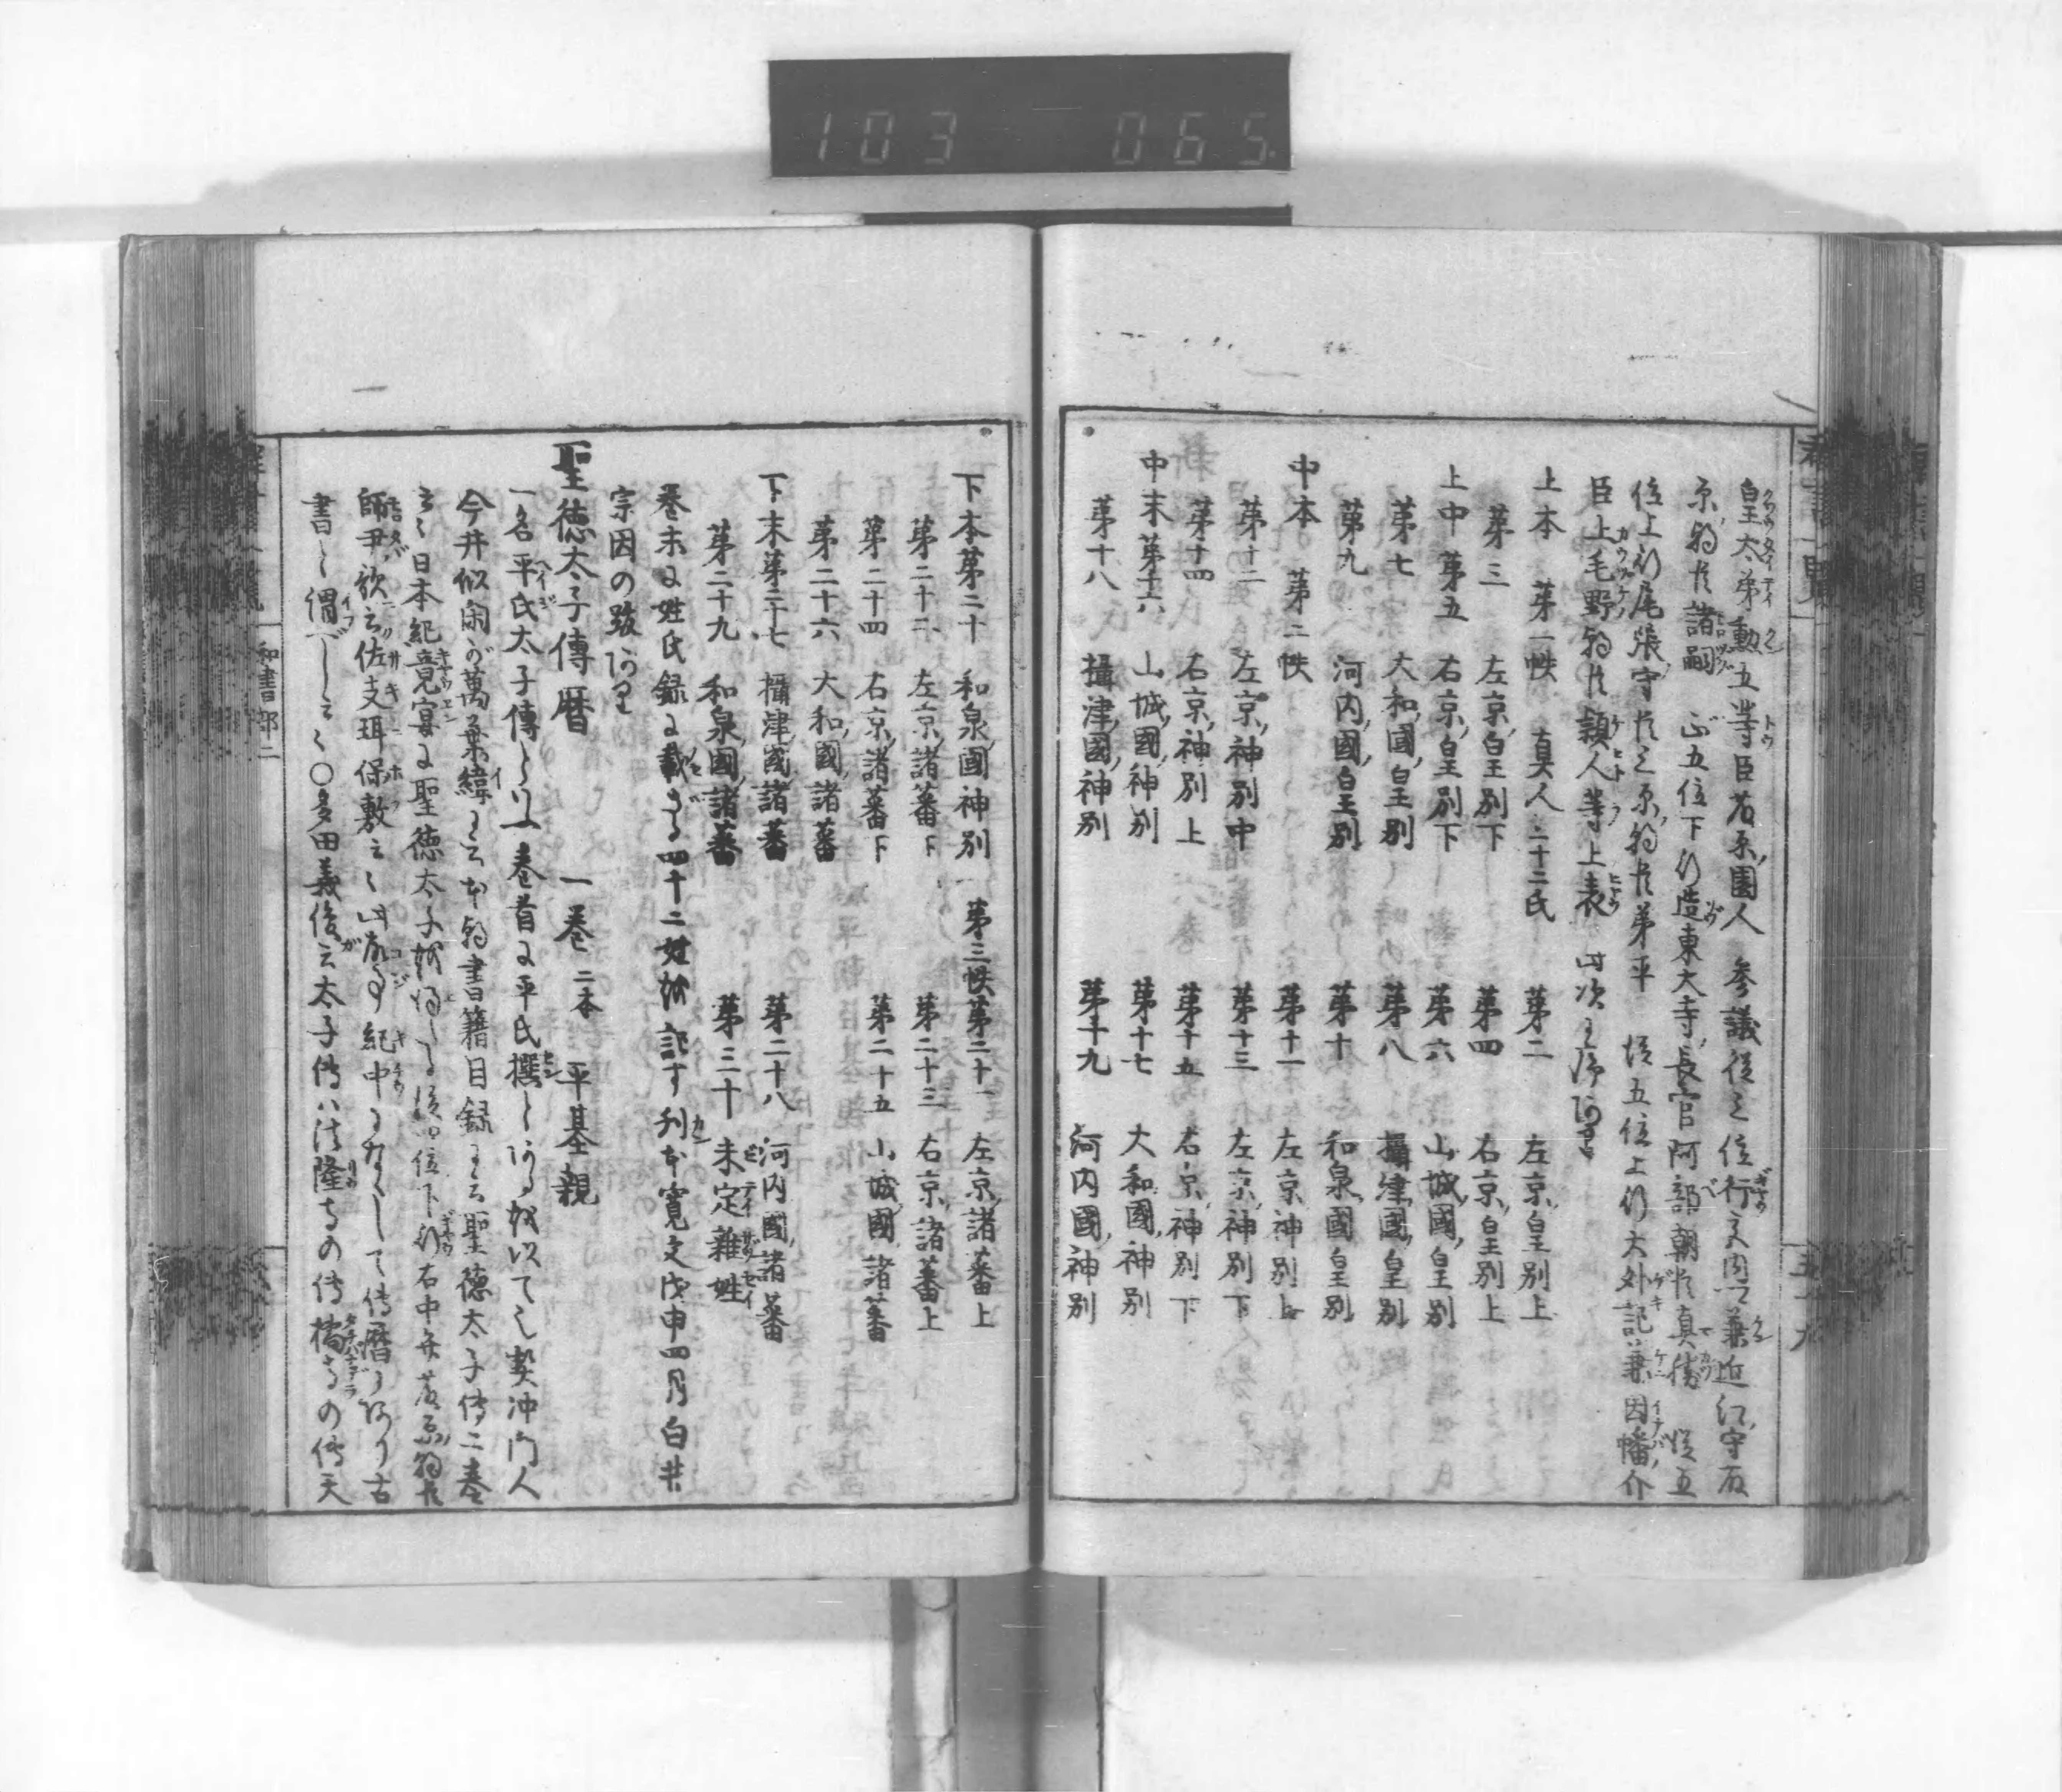 103 065
皇太弟勳五等臣藤原園人 参議従三位行
原朝臣諸嗣 正五位下行造東大寺長官阿部朝臣真勝 従五
位上行尾張守臣三原朝臣弟平 従五位上行大外記兼因幡介
臣上毛野朝臣頴人等上表 此次ニ序アリ
上本 第一帙 真人二十二氏 第二 左京皇別上
第三 左京皇別下 第四 右京皇別上
上中 第五 右京皇別下 第六 山城國皇別
第七 大和國皇別 第八 攝津國皇別
第九 河内國皇別 第十 和泉國皇別
中本 第二帙 第十一 左京神別上
第十二 左京神別中 第十三 左京神別下
第十四 右京神別上 第十五 右京神別下
中末 第十六 山城國神別 第十七 大和國神別
第十八 攝津國神別 第十九 河内國神別
下本 第二十 和泉國神別 第三帙 第二十一 左京諸蕃上
第二十二 左京諸蕃下 第二十三 右京諸蕃上
第二十四 右京諸蕃下 第二十五 山城國諸蕃
第二十六 大和國諸蕃
下末 第二十七 攝津國諸蕃 第二十八 河内國諸蕃
第二十九 和泉國諸蕃 第三十 未定雜姓
巻末に姓氏録に載ざる四十二姓を記す刊本寛文戊申四月白井
宗因の跋あり
聖徳太子傳暦 一巻 二本 平基親
一名平氏太子傳といふ巻首に平氏撰とあるを以て也契冲門人
今井似閑が萬葉緯に云本朝書籍目録に云聖徳太子傳二巻
云々日本紀竟宴に聖徳太子を得る従四位下行右中弁藤原朝臣
師尹歌云佐支珥保敷云々此故事紀中になくして傳暦にあり古
書と謂べし云々〇多田義俊云太子傳ハ法隆寺の傳橘寺の傳天
和書部二